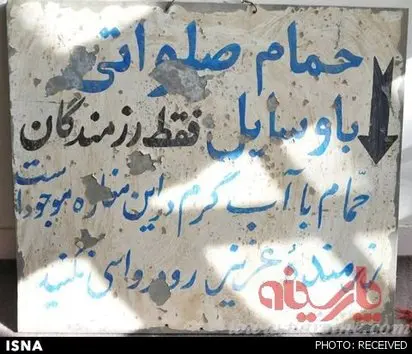 حمام صلواتی
با وسایل فقط رزمندگان
حمّام با آب گرم در این مغازه موجود است
رزمندهٔ عزیز رودرواسی نکنید
پارسینه
ISNA
PHOTO: RECEIVED